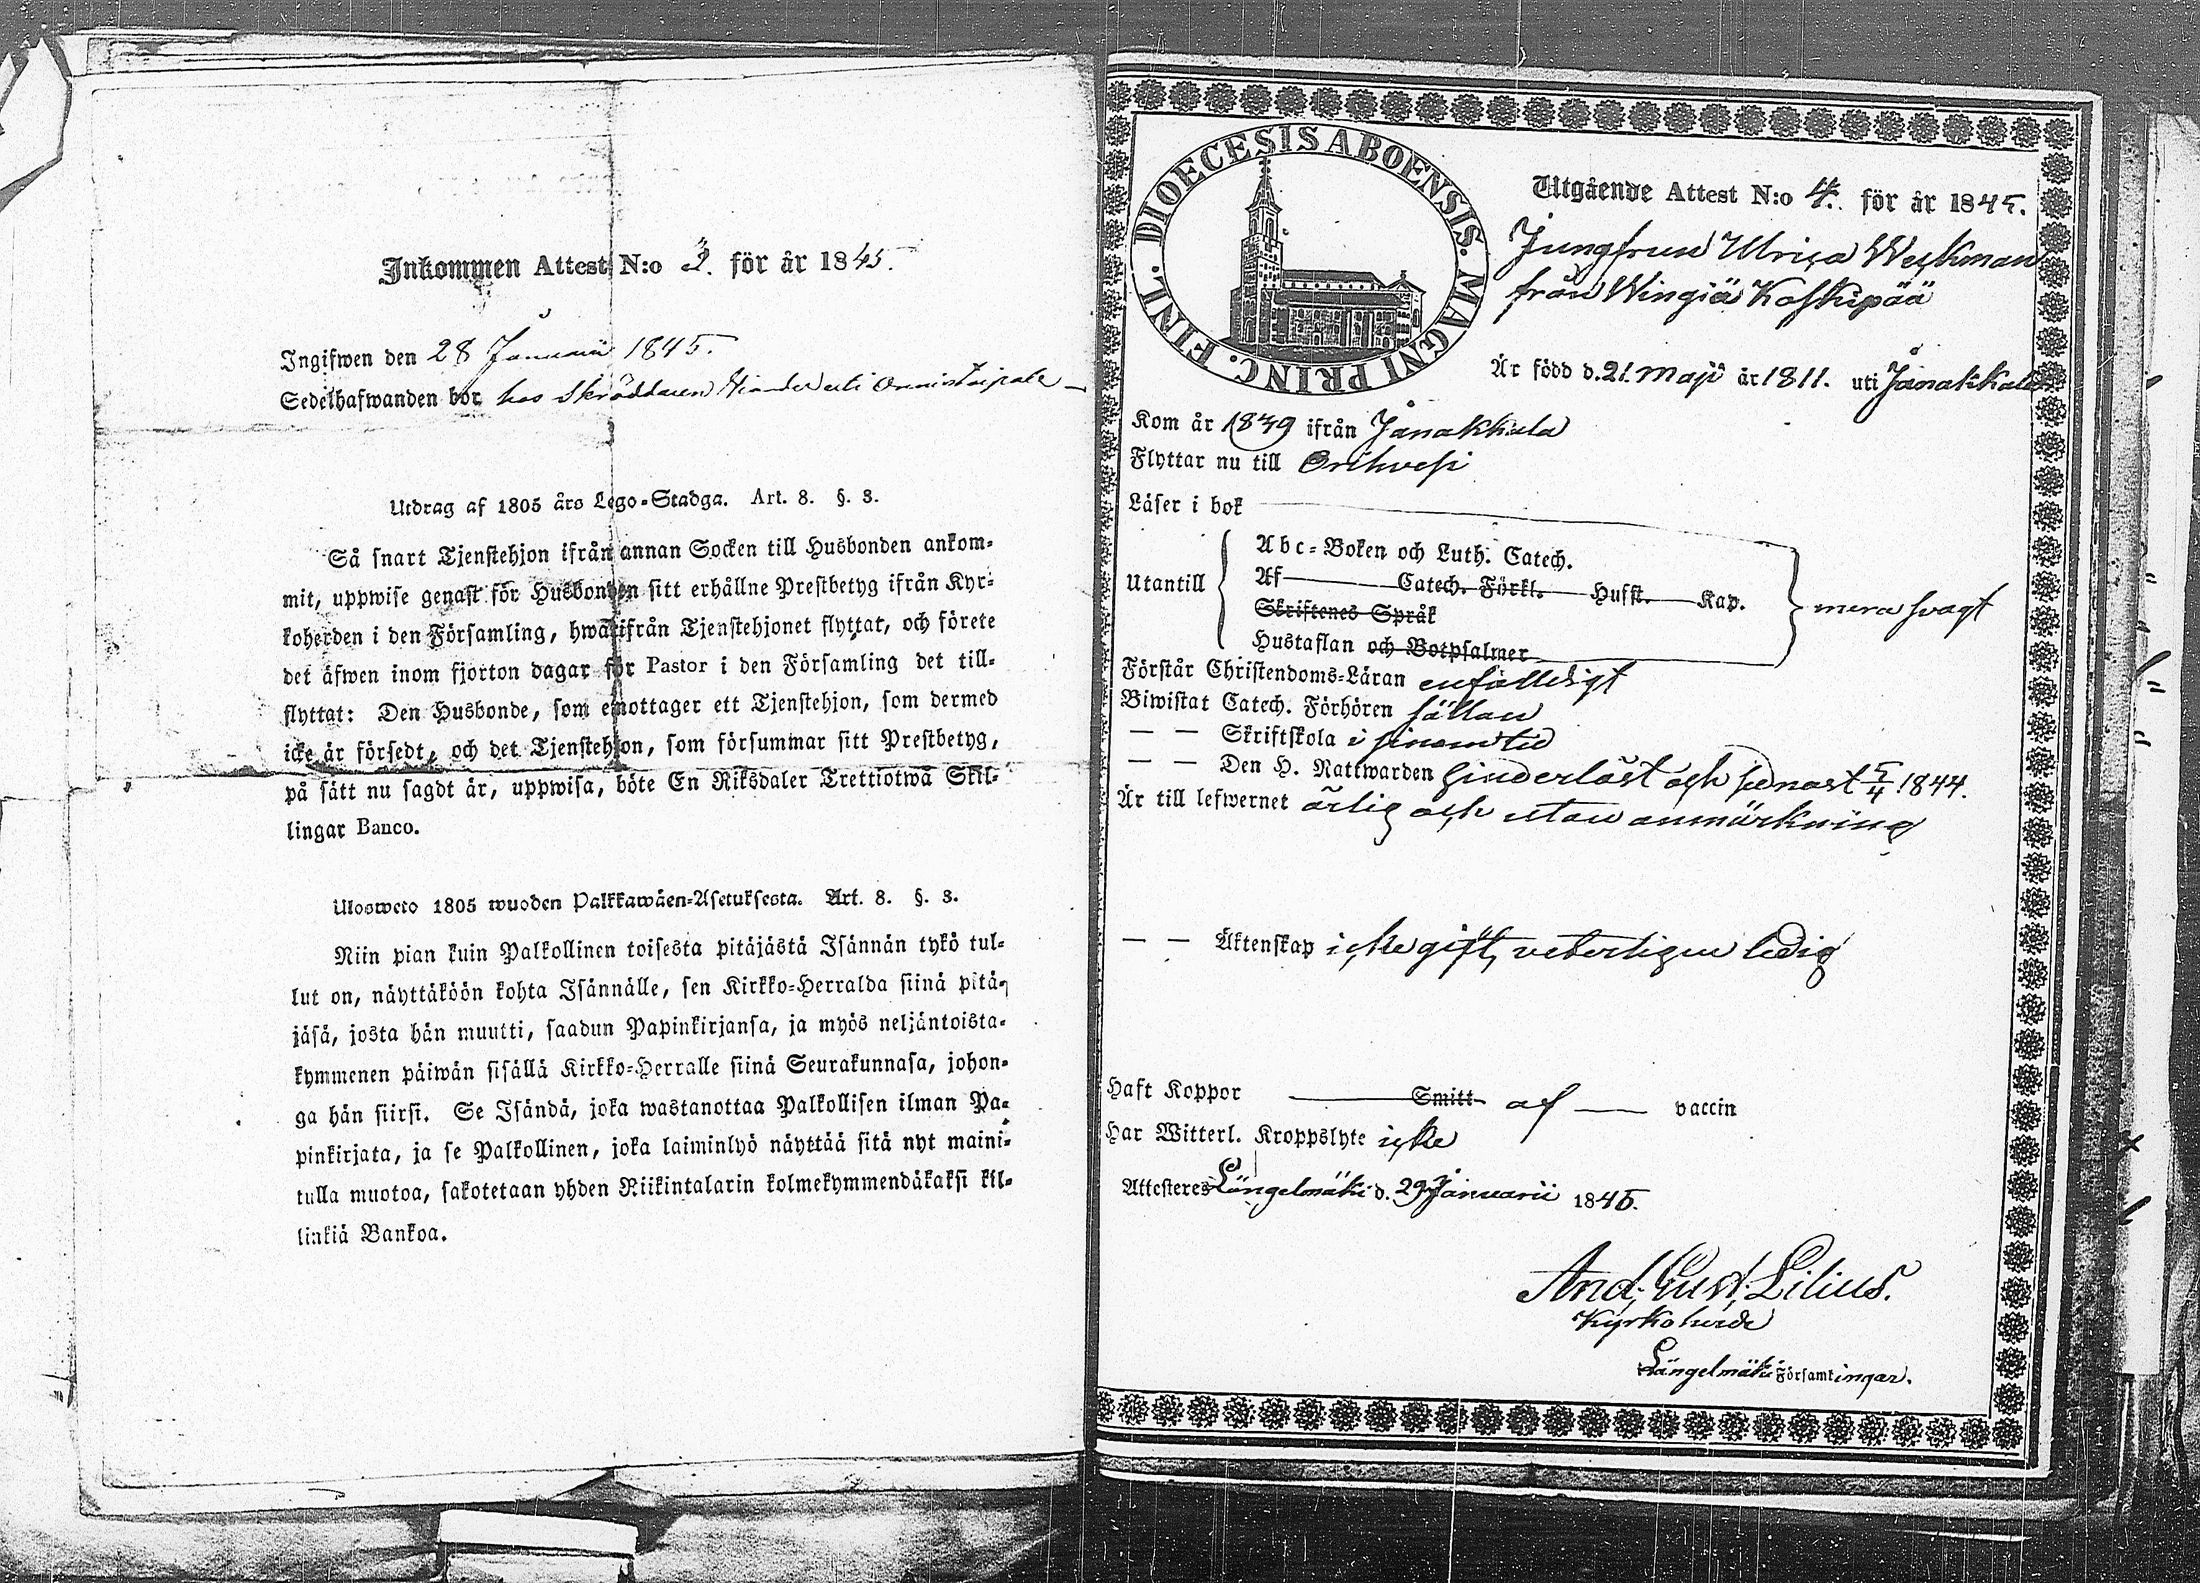 Inkommen Attest N:o 3. för år 1845.
Ingifwen den 28 Januarii 1845.
Sedelhafwanden bor hos Skräddaren uti
Utdrag af 1805 års Lego-Stadga. Art. 8. §. 3.
Så snart Tjenstehjon ifrån annan Socken till Husbonden ankom-
mit, uppwise genast för Husbonden sitt erhållne Prestbetyg ifrån Kyr-
koherden i den Församling, hwarifrån Tjenstehjonet flyttat, och förete
det äfwen inom fjorton dagar för Pastor i den Församling det till-
flyttat: Den Husbonde, som emottager ett Tjenstehjon, som dermed
icke är försedt, och det Tjenstehjon, som försummar sitt Prestbetyg,
på sätt nu sagdt är, uppwisa, böte En Riksdaler Trettiotwå Skil-
lingar Banco.
Ulosweto 1805 wuoden Palkkawäen-Asetuksesta. Art. 8. §. 3.
Niin pian kuin Palkollinen toisesta pitäjästä Isännän tykö tul-
lut on, näyttäköön kohta Isännälle, sen Kirkko-Herralda siinä pitä-
jäsä, josta hän muutti, saadun Papinkirjansa, ja myös neljäntoista-
kymmenen päiwän sisällä Kirkko-Herralle siinä Seurakunnasa, johon-
ga hän siirsi. Se Isändä, joka wastanottaa Palkollisen ilman Pa-
pinkirjata, ja se Palkollinen, joka laiminlyö näyttää sitä nyt maini-
tulla muotoa, sakotetaan yhden Riikintalarin kolmekymmendäkaksi kil-
linkiä Bankoa.
DIOECESIS ABOENSIS. MAGNI PRINC. FINL.
Utgående Attest N:o 4. för år 1845.
Jungfrun Ulrica Weckman
från Wingiä Koskipää
Är född d. 21. Maji år 1811. uti Janakkala
Kom år 1839 ifrån Janakkala
Flyttar nu till Orihvesi
Läser i bok
Utantill
Abc-Boken och Luth. Catech.
Af Catech. Förkl. Hufst. Kap.
Skriftenes Språk
Hustaflan och Botpsalmer
mera svagt
Förstår Christendoms-Läran enfaldigt
Biwistat Catech. Förhören sällan
— — Skriftskola i sinom tid
— — Den H. Nattwarden hinderlöst och senast 5/4 1844.
Är till lefwernet ärlig och utan anmärkning
— — Äktenskap icke gift, veterligen ledig
Haft Koppor Smitt af vaccin
Har Witterl. Kroppslyte icke
Attesteres Längelmäki d. 29 Januarii 1845.
And. Gust. Lilius.
Kyrkoherde
Längelmäki Församlingar.